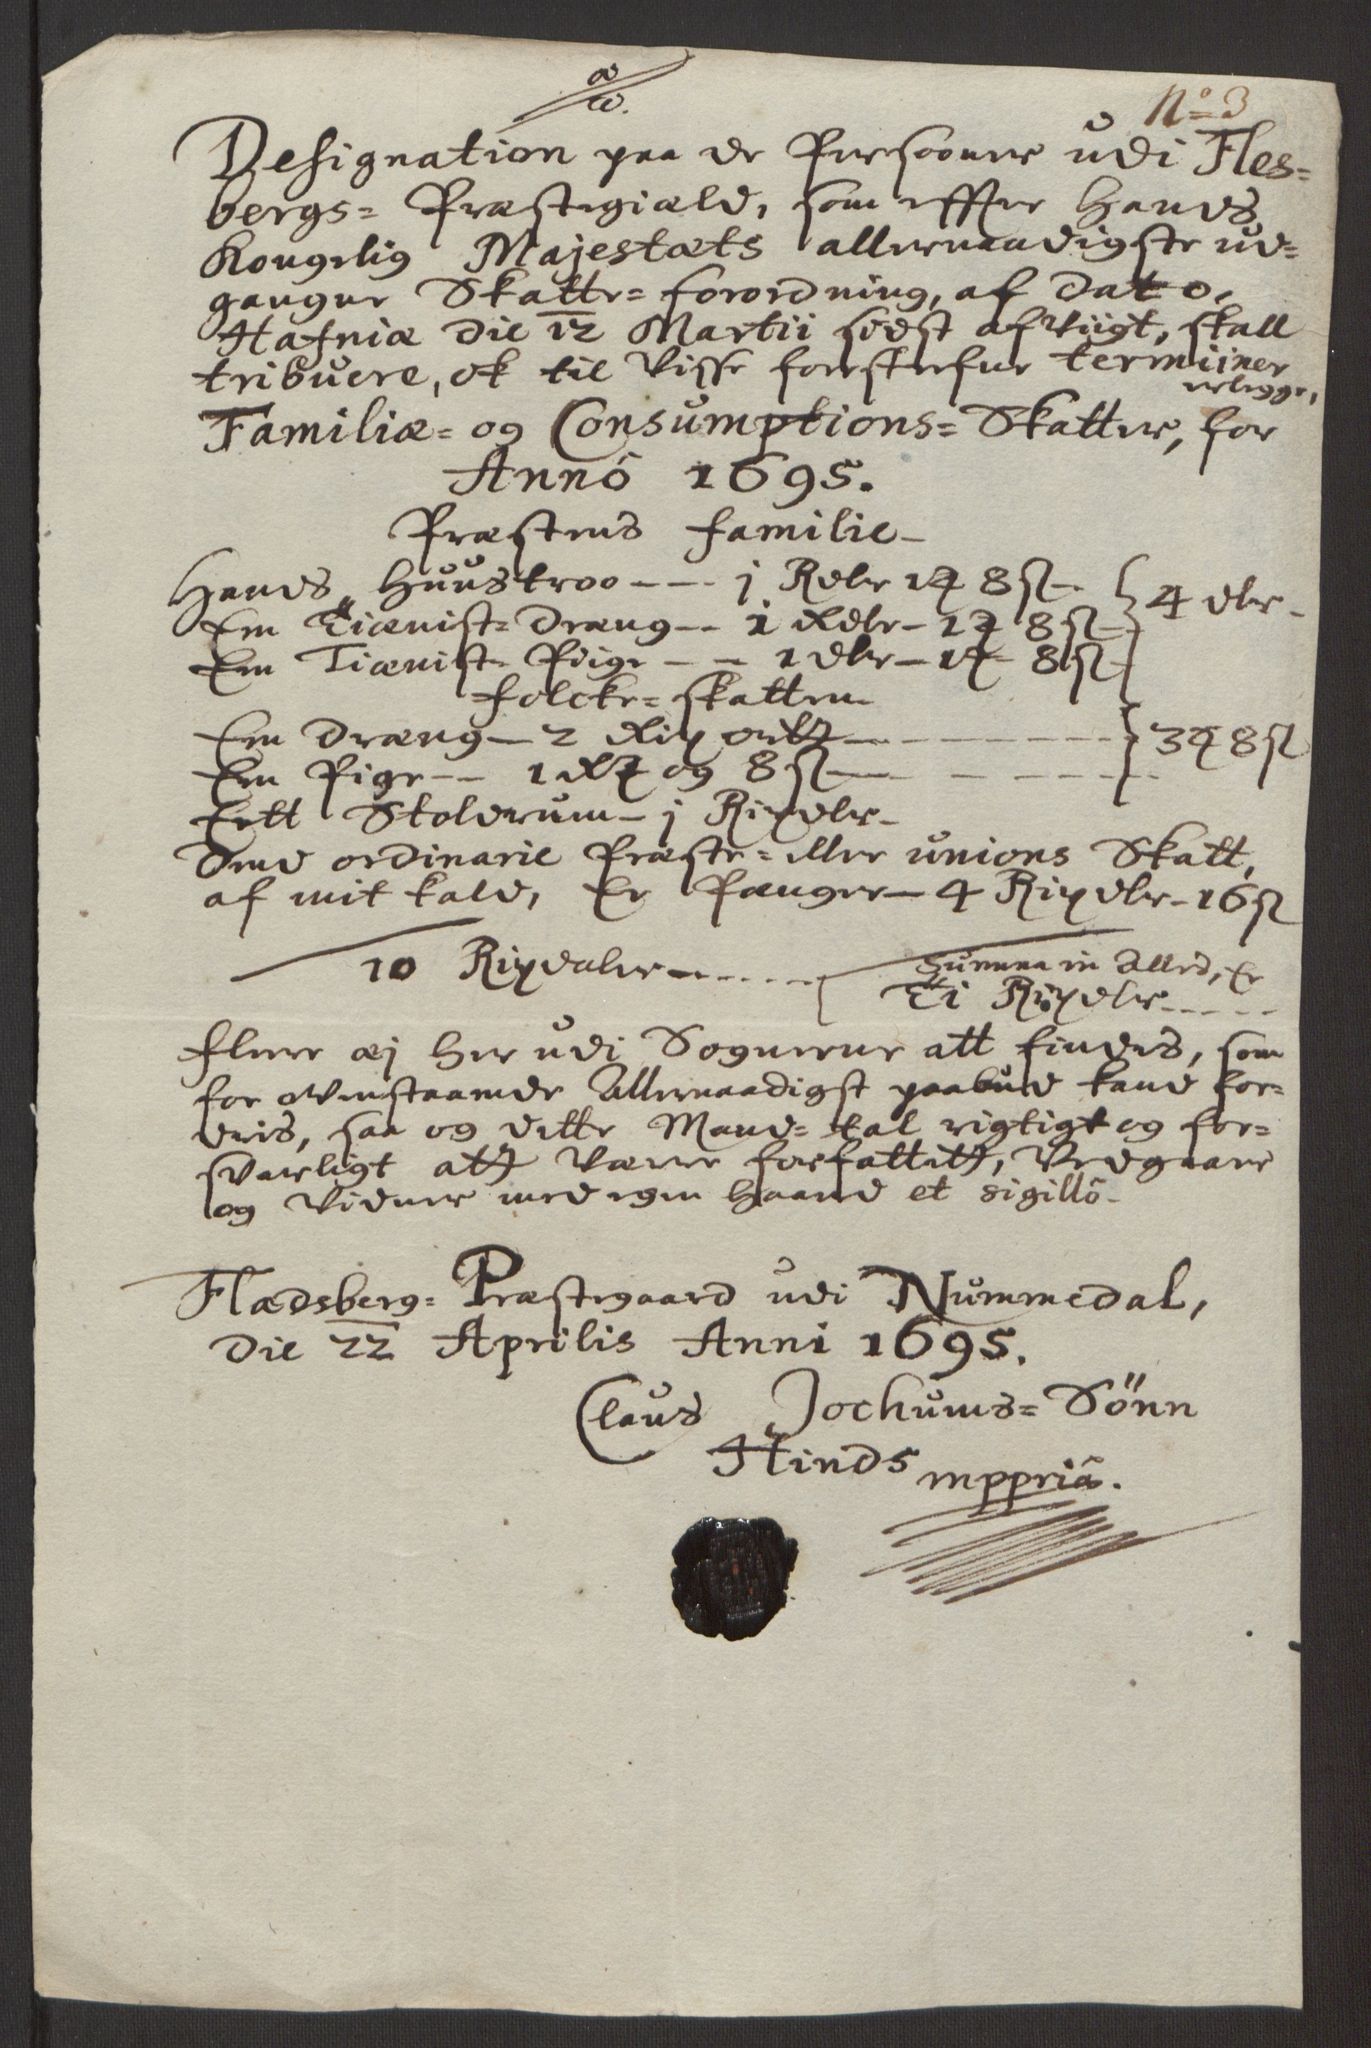 α/ω.
No 3
Designation paa de Persooner udi Fles=
bergs= Præstegiæld, som effter Hands
Kongelig Majestæts allernaadigste ud=
gangne Skatte= forordning, af Dato,
Hafniæ Die 12 Martii sidst afvigt, skall
tribuere, ok til Visse forestrefne terminer
erlegge,
Familiæ= og Consumptions= Skatter, for
Annô 1695.
Præstens familie
Hands Huustroo --- j Rdlr 1 8 s
Een Tiænist= Dræng -- 1 Rdlr - 1 8 s
Een Tiænist Piige -- 1 dlr - 1 8 s
4 dlr
folcke= skatten
Een Dræng - 2 Rix ortt
Een Pige -- 1 og 8 s
3 8 s
Ertt Stoldrum - j Rixdlr
Dend ordinarie Præste= eller unions Skatt,
af mit kald, Er Penger - 4 Rixdlr - 16 s
10 Rixdaler
Summa in Alles, Er
Ti Rixdlr
fleere æj her udi Sognerne att findes, som
for ovenstaaende Allernaadigst paabud kand for=
dris, saa og dette Mand= tal rigtigt og for=
svarligt att Være forfattitt, Vedgaare
og Vidner med egen Haand et sigillô
Flædsberg= Præstegaard udi Nummedal,
Die 22 Aprilis Anni 1695.
Claus Jochums= Sönn
Hinds mppriâ.